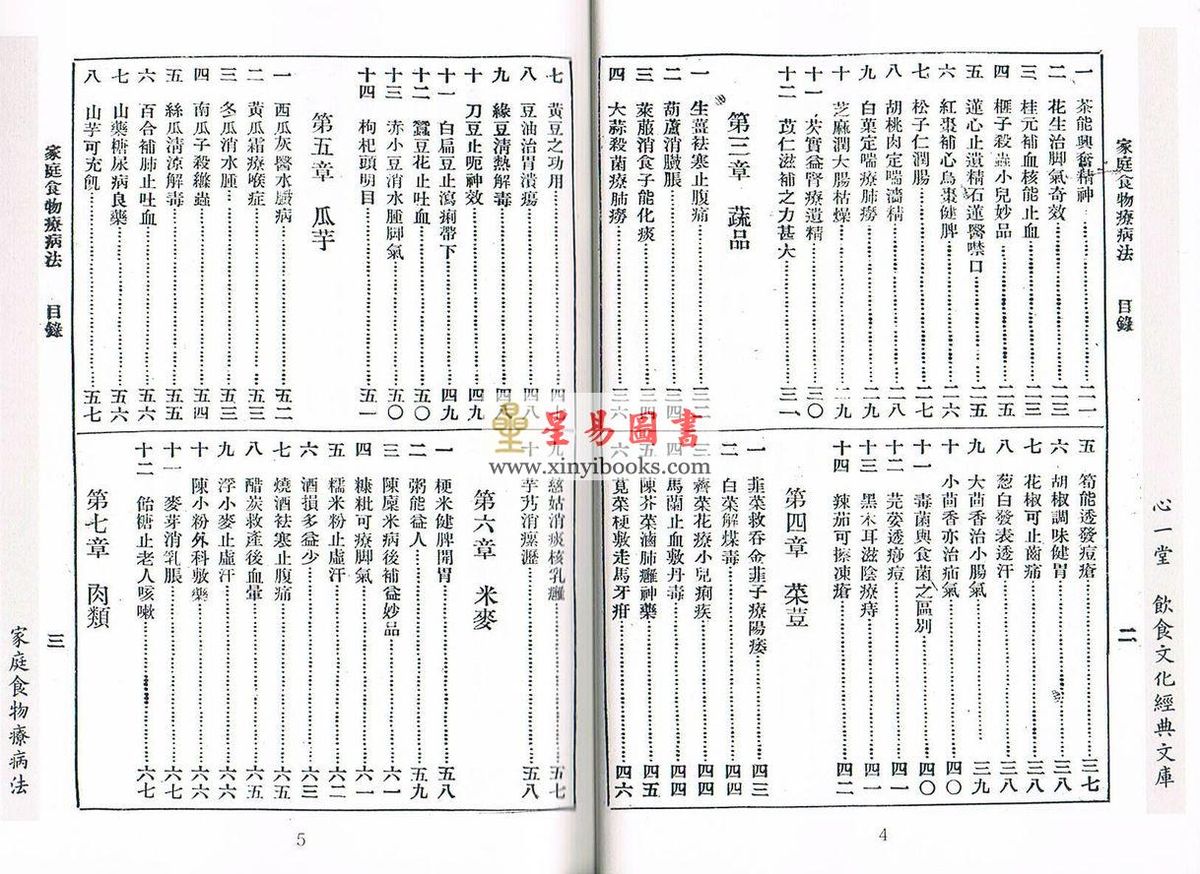 心一堂 飲食文化經典文庫
家庭食物療病法 目錄
二
一 茶能興奮精神 二一
二 花生治脚氣奇效 二三
三 桂元補血核能止血 二三
四 榧子殺蟲小兒妙品 二五
五 蓮心止遺精石蓮醫噤口 二五
六 紅棗補心烏棗健脾 二六
七 松子仁潤腸 二七
八 胡桃肉定喘濇精 二八
九 白菓定喘療肺癆 二九
十 芝麻潤大腸枯燥 二九
十一 芡實益腎療遺精 三〇
十二 苡仁滋補之力甚大 三一
第三章 蔬品
一 生薑袪寒止腹痛 三二
二 葫蘆消臌脹 三四
三 萊菔消食子能化痰 三四
四 大蒜殺菌療肺癆 三六
五 筍能透發痘瘡 三七
六 胡椒調味健胃 三八
七 花椒可止齒痛 三八
八 葱白發表透汗 三八
九 大茴香治小腸氣 三九
十 小茴香亦治疝氣 四〇
十一 毒菌與食菌之區別 四〇
十二 芫荽透痧痘 四一
十三 黑木耳滋陰療痔 四一
十四 辣茄可擦凍瘡 四二
第四章 菜荳
一 韭菜救吞金韭子療陽痿 四三
二 白菜解煤毒 四四
三 薺菜花療小兒痢疾 四四
四 馬蘭止血敷丹毒 四四
五 陳芥菜滷肺癰神藥 四五
六 莧菜梗敷走馬牙疳 四六
4
家庭食物療病法 目錄
三
七 黃豆之功用 四七
八 豆油治胃潰瘍 四八
九 綠豆清熱解毒 四八
十 刀豆止呃神效 四九
十一 白扁豆止瀉痢帶下 四九
十二 蠶豆花止吐血 五〇
十三 赤小豆消水腫脚氣 五〇
十四 枸杞頭明目 五一
第五章 瓜芋
一 西瓜灰醫水臌病 五二
二 黃瓜霜療喉症 五三
三 冬瓜消水腫 五三
四 南瓜子殺縧蟲 五四
五 絲瓜清涼解毒 五五
六 百合補肺止吐血 五六
七 山藥糖尿病良藥 五六
八 山芋可充飢 五七
九 慈姑消痰核乳癰 五七
十 芋艿消瘰癧 五八
第六章 米麥
一 粳米健脾開胃 五八
二 粥能益人 五九
三 陳廩米病後補益妙品 六〇
四 糠秕可療脚氣 六一
五 糯米粉止虛汗 六二
六 酒損多益少 六三
七 燒酒袪寒止腹痛 六五
八 醋炭救產後血暈 六五
九 浮小麥止虛汗 六六
十 陳小粉外科敷藥 六六
十一 麥芽消乳脹 六七
十二 飴糖止老人咳嗽 六七
第七章 肉類
5
家庭食物療病法
星易圖書
www.xinyibooks.com